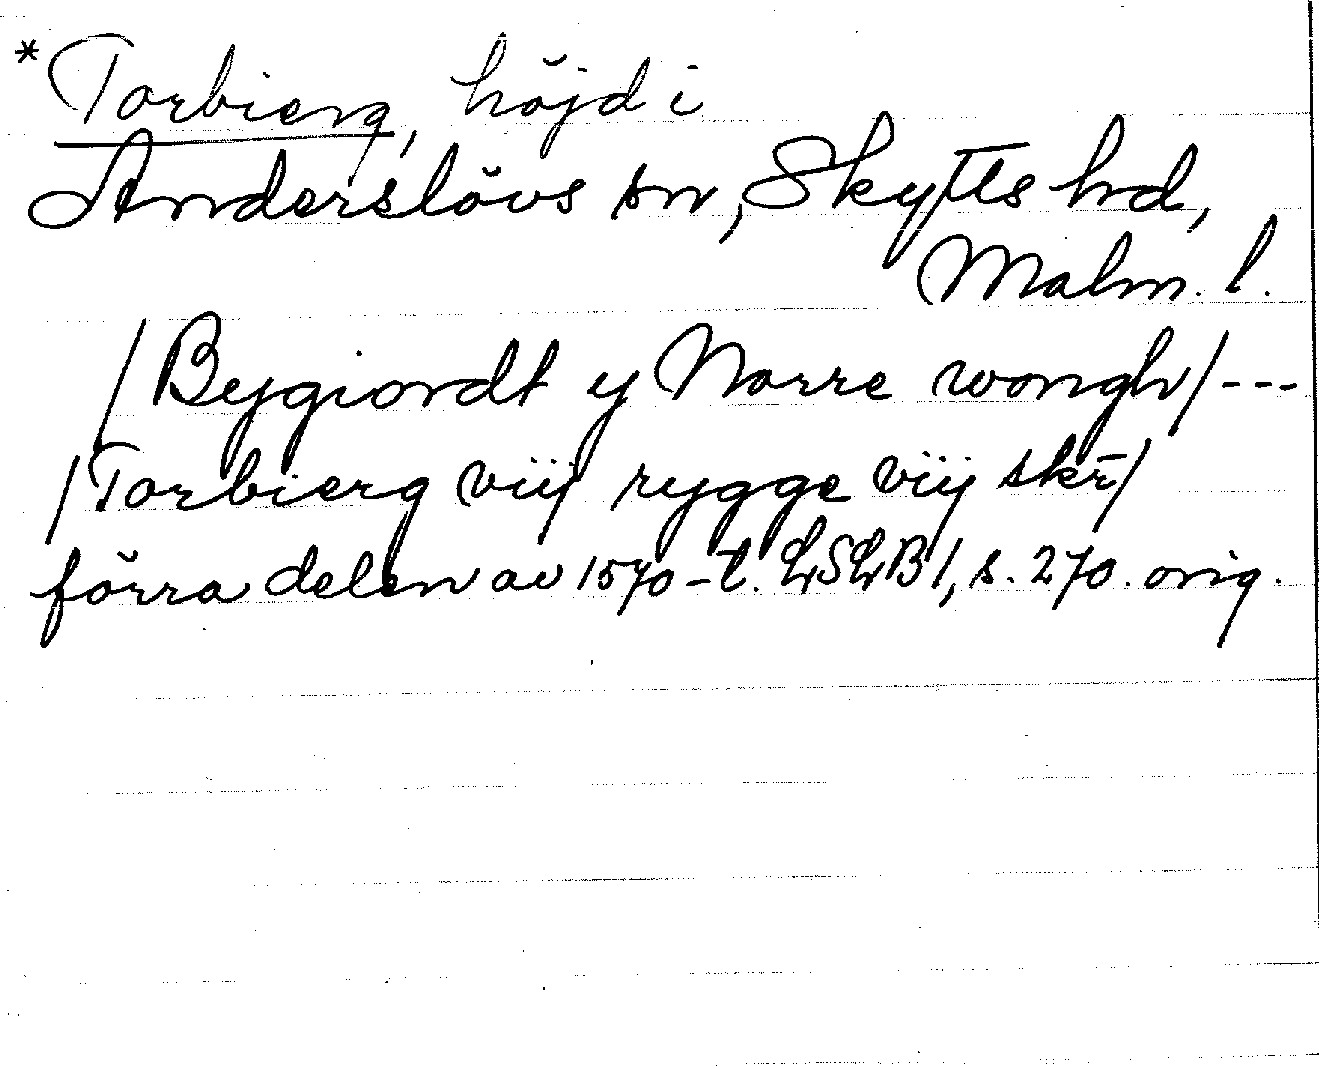 *Torbierg, höjd i
Anderslövs sn, Skytts hd,
Malm. l.
/Bygiordt y Norre wongh/---
/Torbierg viij rygge viij skr̄/
förra delen av 1570-t. LSLB I, s. 270. orig.